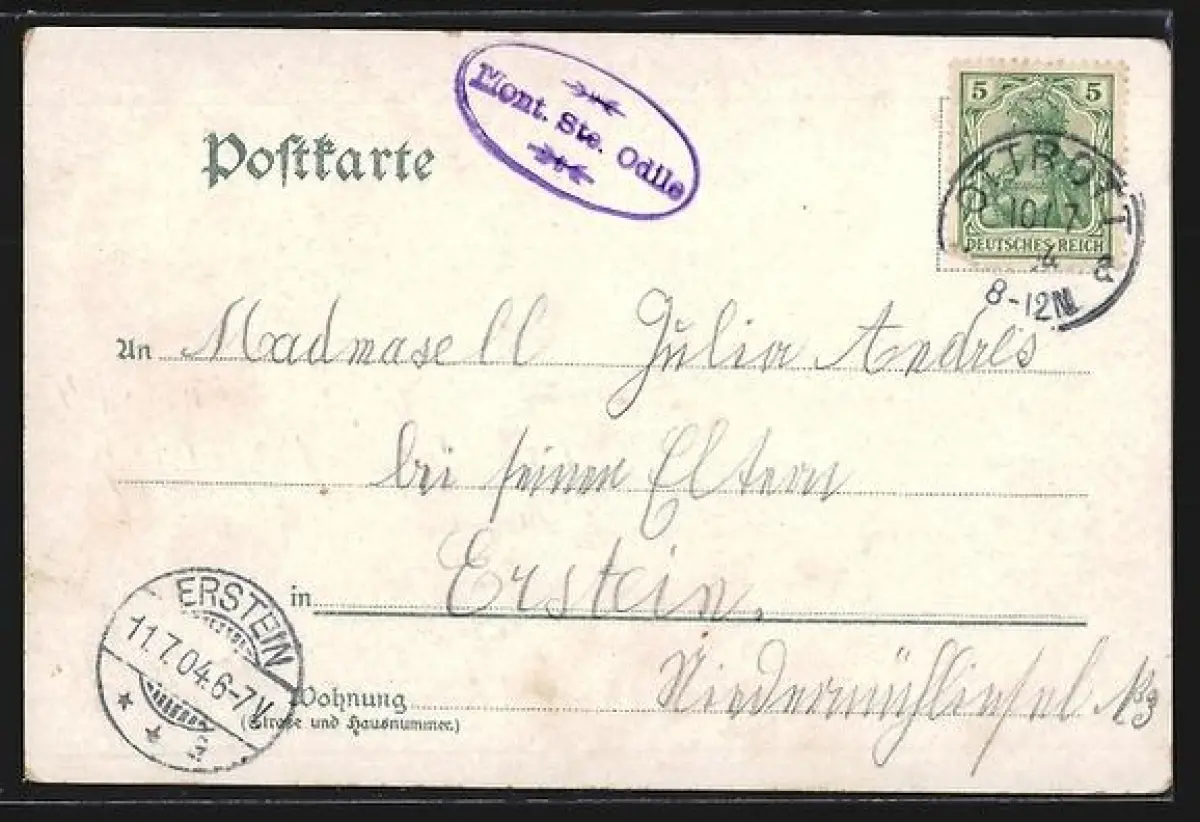 Postkarte
Mont. Ste. Odile
5 5
DEUTSCHES REICH
OTTROTT
10/7
4
8-12N
An Madmasell Julia Andrés
bei seinen Eltern
in Erstein.
ERSTEIN
11.7.04.6-7V
Wohnung
(Straße und Hausnummer.)